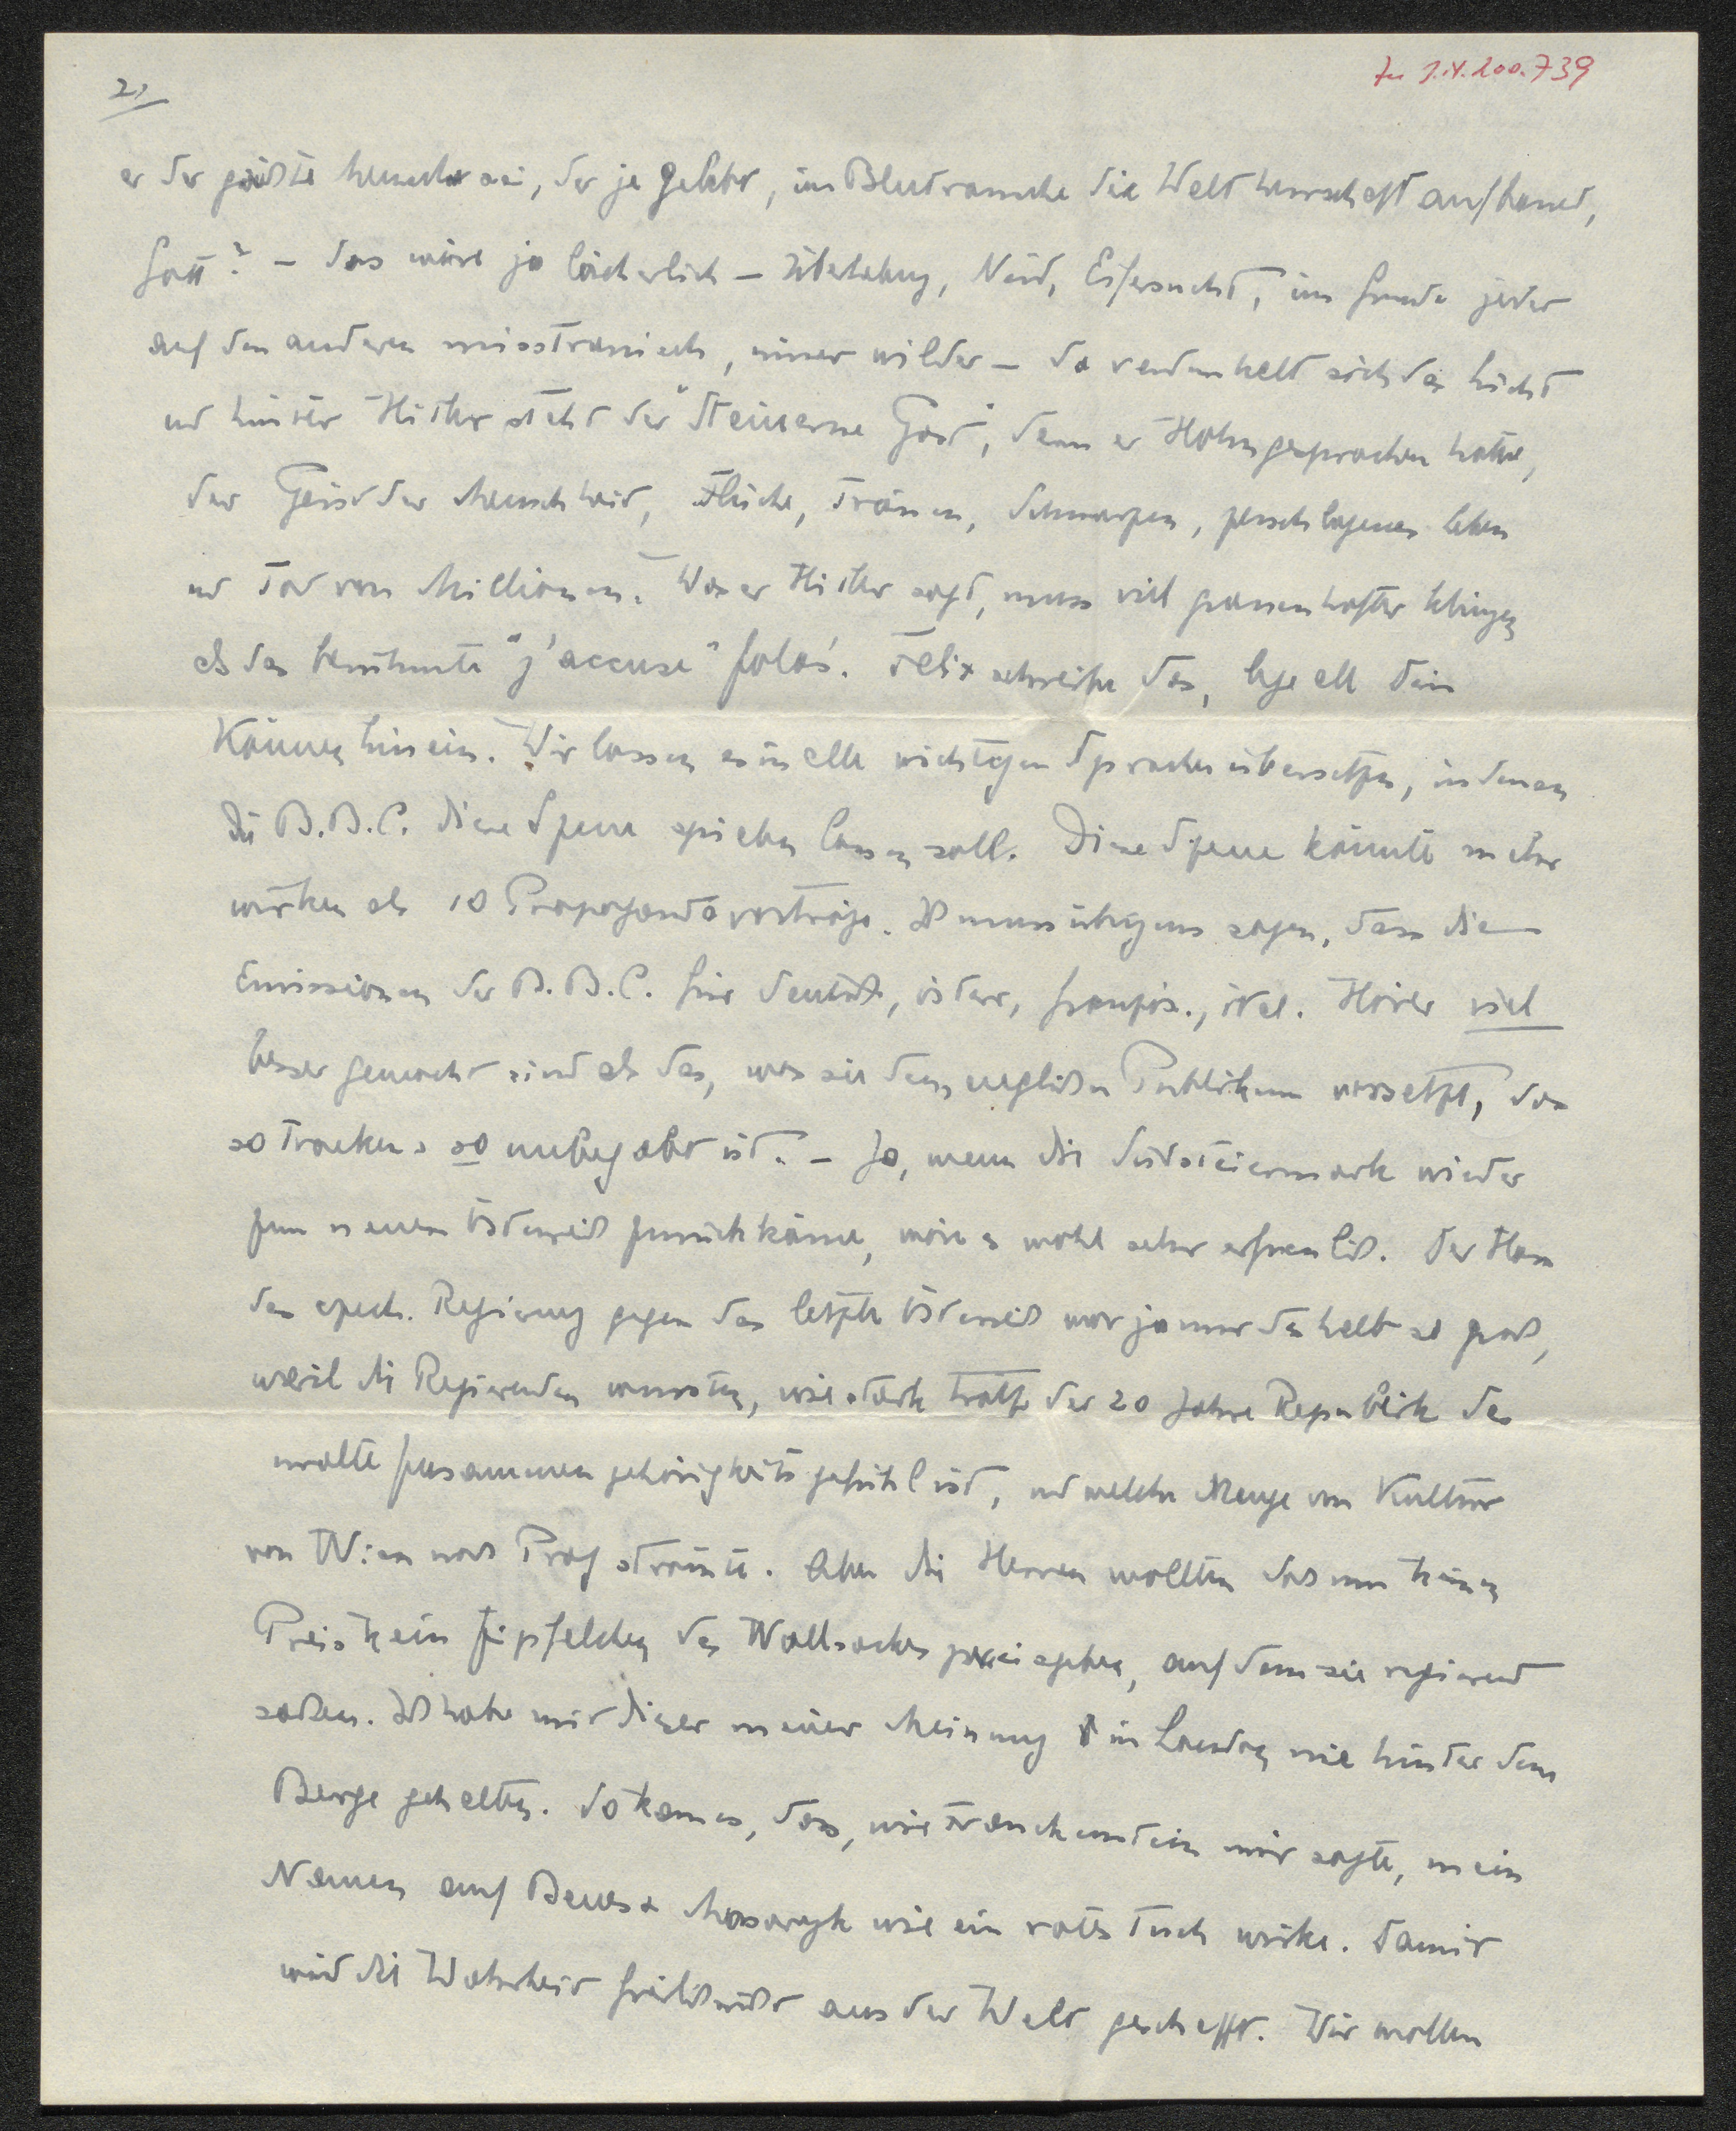 2)
Zu I.N. 200.739
er der größte Mensch sei, der je gelebt, im Blutrausche die Weltherrschaft aufbaut,
Gott? – das wäre ja lächerlich – Überhebung, Neid, Eifersucht, im Grunde jeder
auf den anderen misstrauisch, immer wilder – da verdunkelt sich das Licht
und hinter Hitler steht der "Steinerne Gast", dem er Hohn gesprochen hatte,
der Geist der Menschheit, Flüche, Tränen, Schmerzen, zerschlagenes Leben
und Tod von Millionen. Was er Hitler sagt, muss viel grauenhafter klingen
als das berühmte "j'accuse" Zola's. Felix schreibe das, lege all Dein
Können hinein. Wir lassen es in alle wichtigen Sprachen übersetzen, in denen
die B.B.C. diese Szene spielen lassen soll. Diese Szene könnte mehr
wirken als 10 Propagandavorträge. Ich muss übrigens sagen, dass die
Emissionen der B.B.C. für deutsche, österr, französ., ital. Hörer viel
besser gemacht sind als das, was sie dem englischen Publikum vorsetzt, das
so trocken & so unbegabt ist. – Ja, wenn die Südsteiermark wieder
zum neuen Österreich zurückkäme, wäre es wohl sehr erfreulich. Der Hass
der čzech. Regierung gegen das letzte Österreich war ja nur deshalb so groß,
weil die Regierenden wussten, wie stark trotz der 20 Jahre Republik das
uralte Zusammengehörigkeitsgefühl ist, und welche Menge von Kultur
von Wien nach Prag strömte. Aber die Herren wollten das um keinen
Preis kein Zipfelchen des Wollsackes preisgeben, auf dem sie regierend
saßen. Ich habe mit dieser meiner Meinung in London nie hinter dem
Berge gehalten. So kam es, dass, wie Franckenstein mir sagte, mein
Namen auf Benes & Masaryk wie ein rotes Tuch wirke. Damit
wird die Wahrheit freilich nicht aus der Welt geschafft. Wir wollen